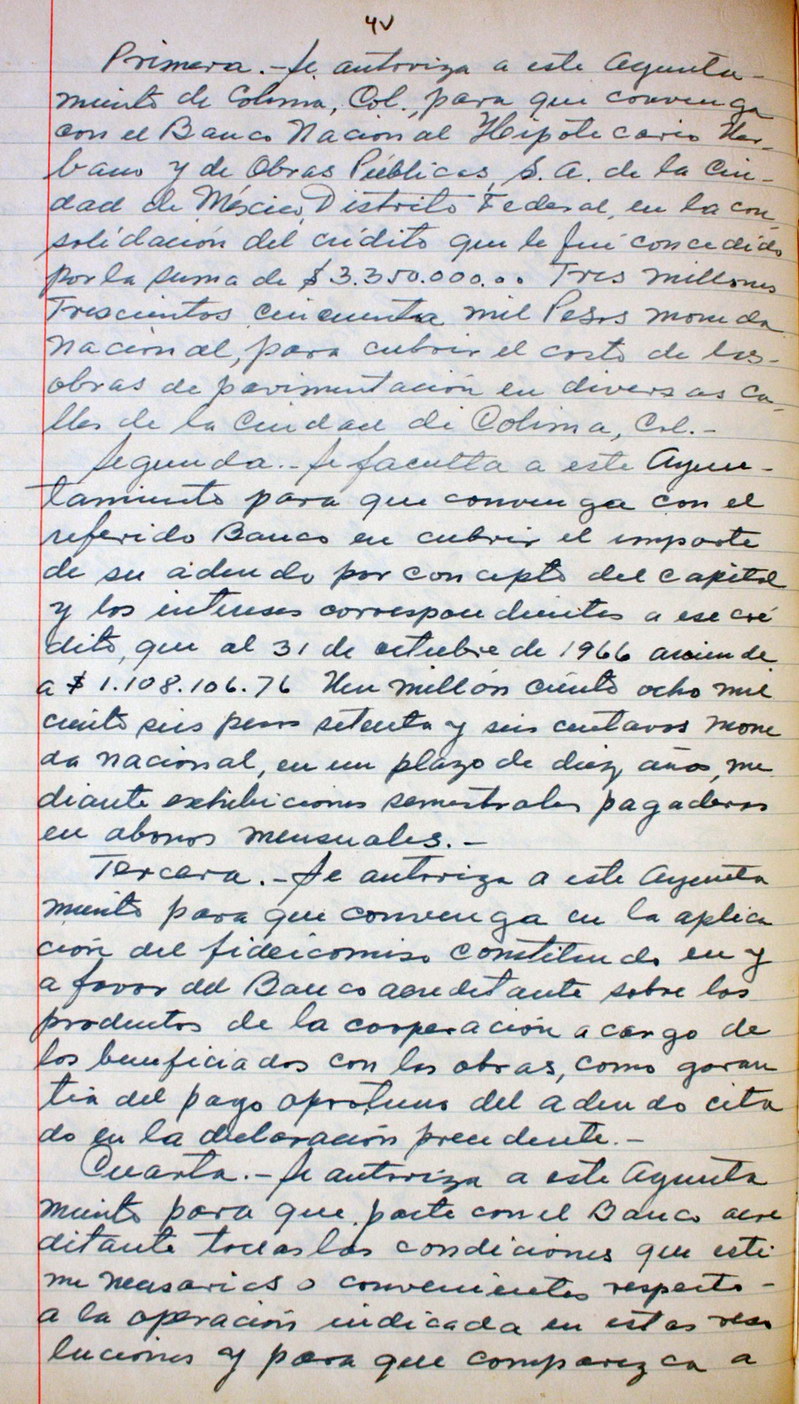 4v
Primera.-Se autoriza a este Ayunta-
miento de Colima, Col., para que convenga
con el Banco Nacional Hipotecario Ur-
bano y de Obras Públicas, S. A. de la Ciu-
dad de México, Distrito Federal, en la con-
solidación del crédito que le fué concedido
por la suma de $3.350.000.00 Tres millones
Trescientos cincuenta mil Pesos moneda
nacional, para cubrir el costo de las-
obras de pavimentación en diversas ca-
lles de la Ciudad de Colima, Col.-
Segunda.-Se faculta a este Ayun-
tamiento para que convenga con el
referido Banco en cubrir el importe
de su adeudo por concepto del capital
y los intereses correspondientes a ese cré
dito, que al 31 de octubre de 1966 asciende
a $1.108.106.76 Un millón ciento ocho mil
ciento seis pesos setenta y seis centavos mone
da nacional, en un plazo de diez años, me
diante exhibiciones semestrales pagaderas
en abonos mensuales.-
Tercera.-Se autoriza a este Ayunta
miento para que convenga en la aplica
ción del fideicomiso constituido en y
a favor del Banco acreditante sobre los
productos de la cooperación a cargo de
los beneficiados con las obras, como garan
tía del pago oportuno del adeudo cita
do en la declaración precedente.-
Cuarta.-Se autoriza a este Ayunta
miento para que pacte con el Banco acre
ditante todas las condiciones que esti
me necesarias o convenientes respecto-
a la operación indicada en estas reso
luciones y para que comparezca a